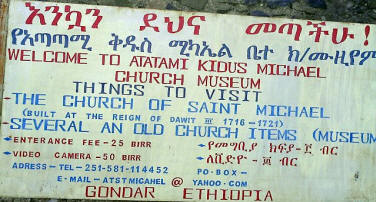 እንኳን ደህና መጣችሁ!
የአጣጣሚ ቅዱስ ሚካኤል ቤተ ክ/ሙዚየም
WELCOME TO ATATAMI KIDUS MICHAEL
CHURCH MUSEUM
THINGS TO VISIT
-THE CHURCH OF SAINT MICHAEL
(BUILT AT THE REIGN OF DAWIT III 1716-1721)
-SEVERAL AN OLD CHURCH ITEMS (MUSEUM
ENTERANCE FEE-25 BIRR
•የመግቢያ ክፍያ-፳ ብር
VIDEO CAMERA-50 BIRR
•ለቪድዮ-፶ ብር
ADRESS-TEL-251-581-114452
PO-BOX-
E-MAIL-ATST MICAHEL@YAHOO-COM
GONDAR ETHIOPIA